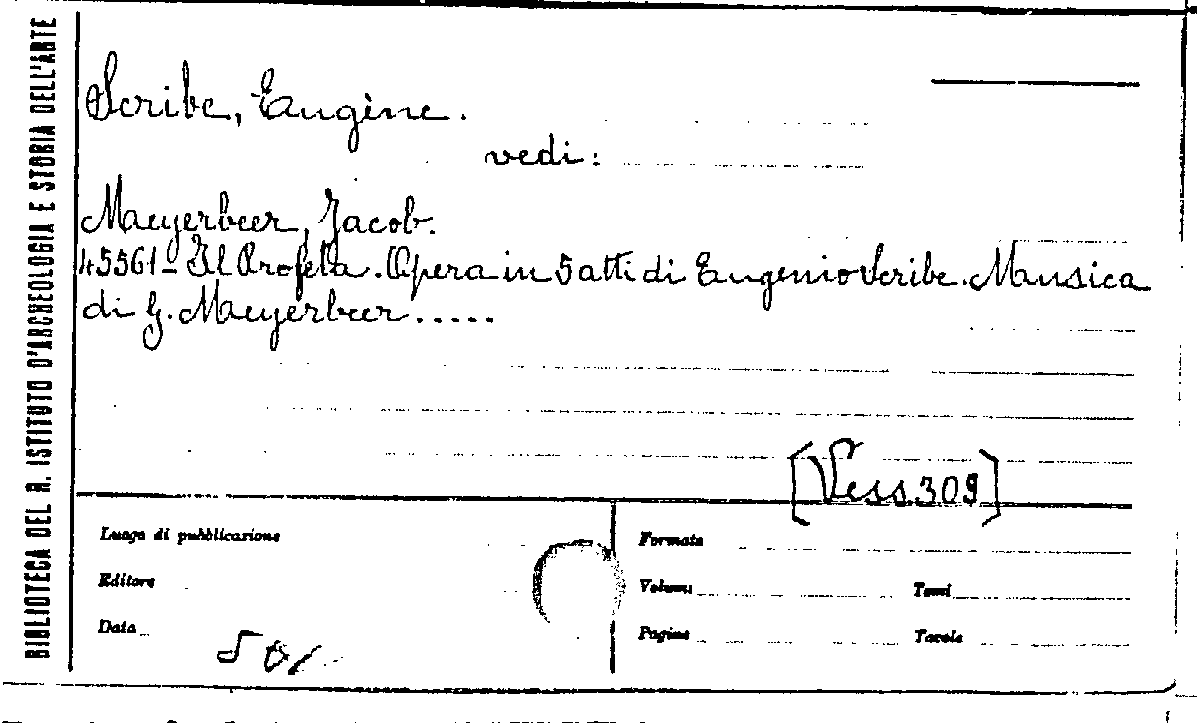 BIBLIOTECA DEL R. ISTITUTO D'ARCHEOLOGIA E STORIA DELL'ARTE
Scribe, Eugène.
vedi:
Mayerbeer, Jacob.
45561 - Il Profeta. Opera in 5 atti di Eugenio Scribe. Musica
di G. Mayerbeer.....
[Vess 309]
Luogo di pubblicazione
Formato
Editore
Volumi
Tomi
Data
Pagine
Tavole